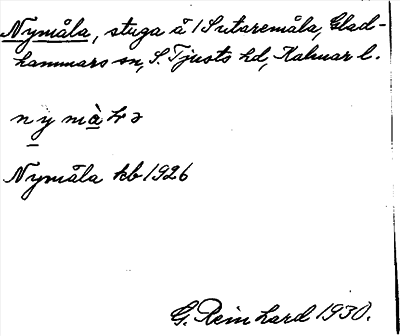 Nymåla, stuga å 1 Sutaremåla, Glad-
hammars sn, S. Tjusts hd, Kalmar l.
Nymåla kb 1926
G. Reinhard 1930.